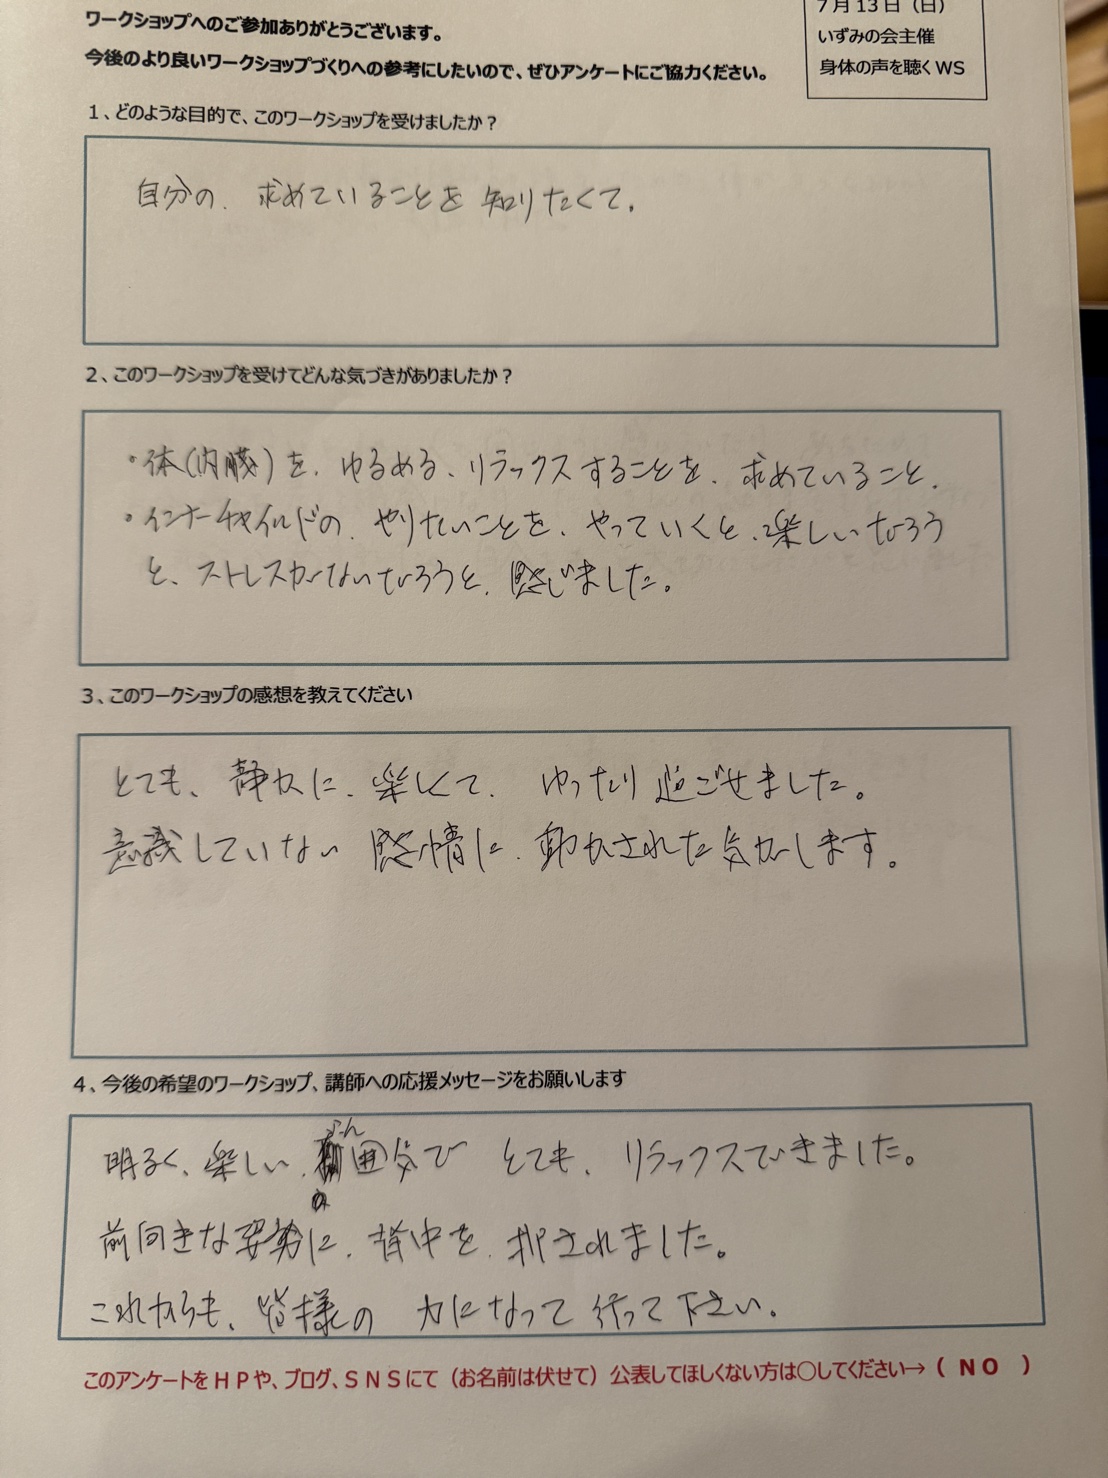 ワークショップへのご参加ありがとうございます。
今後のより良いワークショップづくりへの参考にしたいので、ぜひアンケートにご協力ください。
7月13日（日）
いずみの会主催
身体の声を聴くWS
1、どのような目的で、このワークショップを受けましたか？
自分の、求めていることを知りたくて。
2、このワークショップを受けてどんな気づきがありましたか？
・体(内臓)を、ゆるめる、リラックスすることを、求めていること、
・インナーチャイルドの、やりたいことを、やっていくと、楽しいだろう
と、ストレスがないだろうと、感じました。
3、このワークショップの感想を教えてください
とても、静かに、楽しくて、ゆったり過ごせました。
意識していない感情に、動かされた気がします。
4、今後の希望のワークショップ、講師への応援メッセージをお願いします
明るく、楽しい、ふん囲気で とても、リラックスできました。
前向きな姿勢に、背中を、押されました。
これからも、皆様の 力になって行って下さい。
このアンケートをHPや、ブログ、SNSにて（お名前は伏せて）公表してほしくない方は○してください→（ NO ）